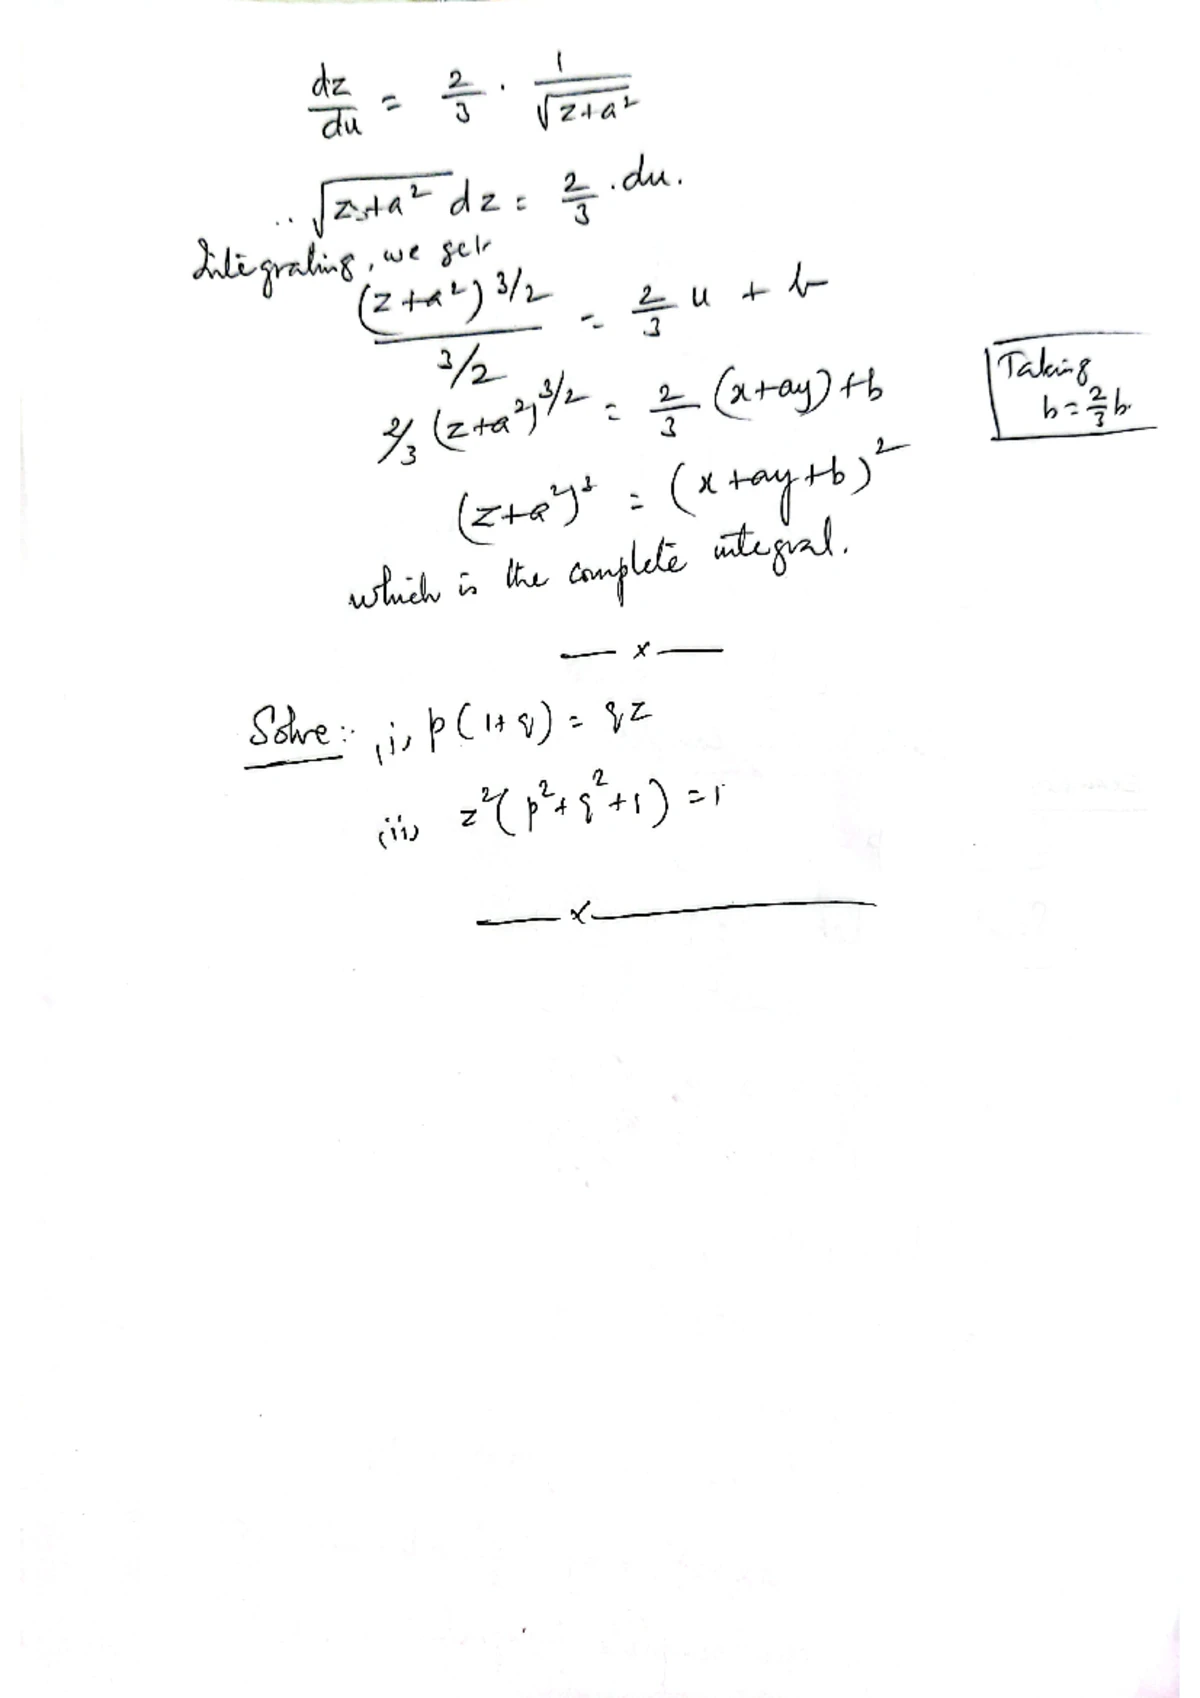 dz/du = 2/3 · 1/√(z+a²)
∴ √(z+a²) dz = 2/3 . du.
Integrating, we get
(z+a²)^3/2 / 3/2 = 2/3 u + b
2/3 (z+a²)^3/2 = 2/3 (x+ay)+b
Taking
b = 2/3 b.
(z+a²)³ = (x+ay+b)²
which is the complete integral.
— x —
Solve :- (i) p(1+q) = qz
(ii) z²(p²+q²+1) = 1
— x —